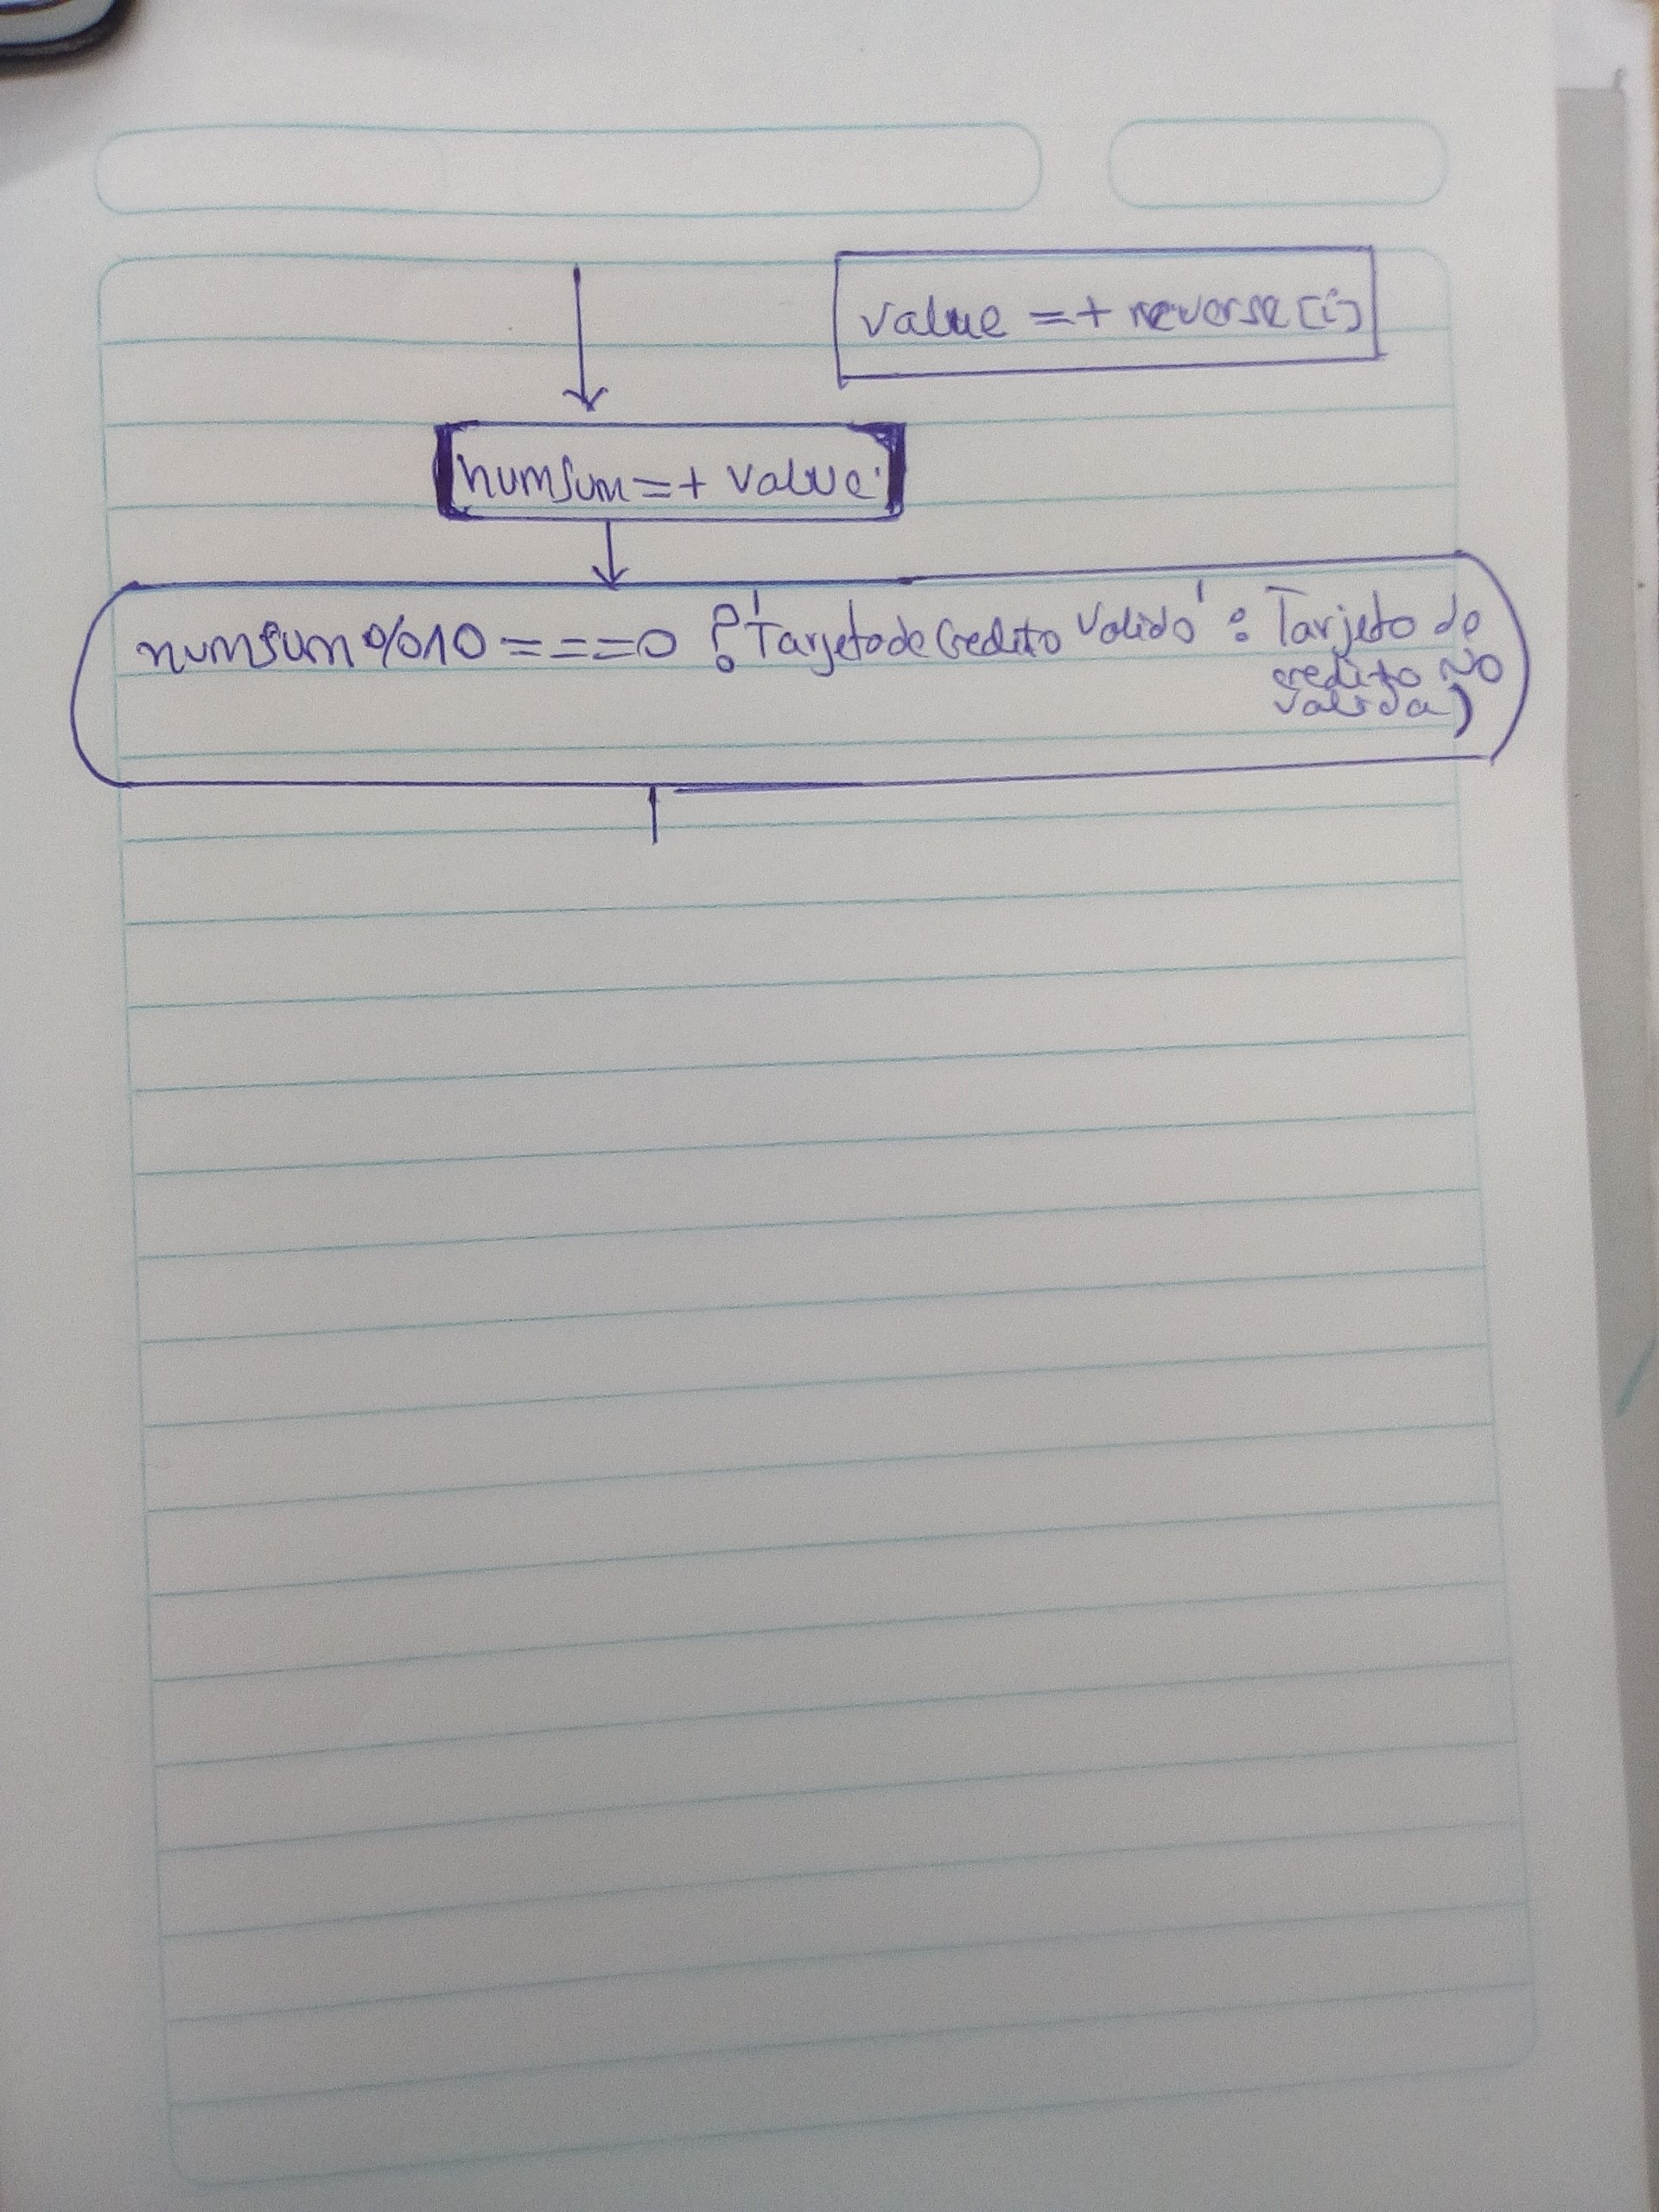 value =+ reverse[i]
numSum=+ value
numSum%10====0 ?'Tarjeta de Credito Valida' : Tarjeta de
credito NO
valida)